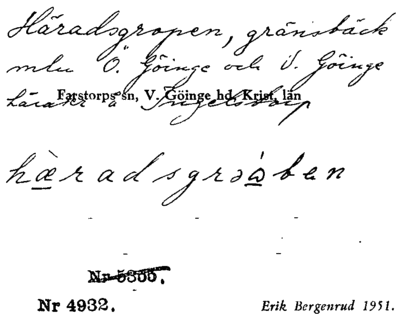 Häradsgropen, gränsbäck
mlu Ö. Göinge och V. Göinge
Farstorps sn, V. Göinge hd, Krist. län
härader å Ingelstorp
hæradsgrɔ́ɷben
Nr 5355.
Nr 4932.
Erik Bergenrud 1951.